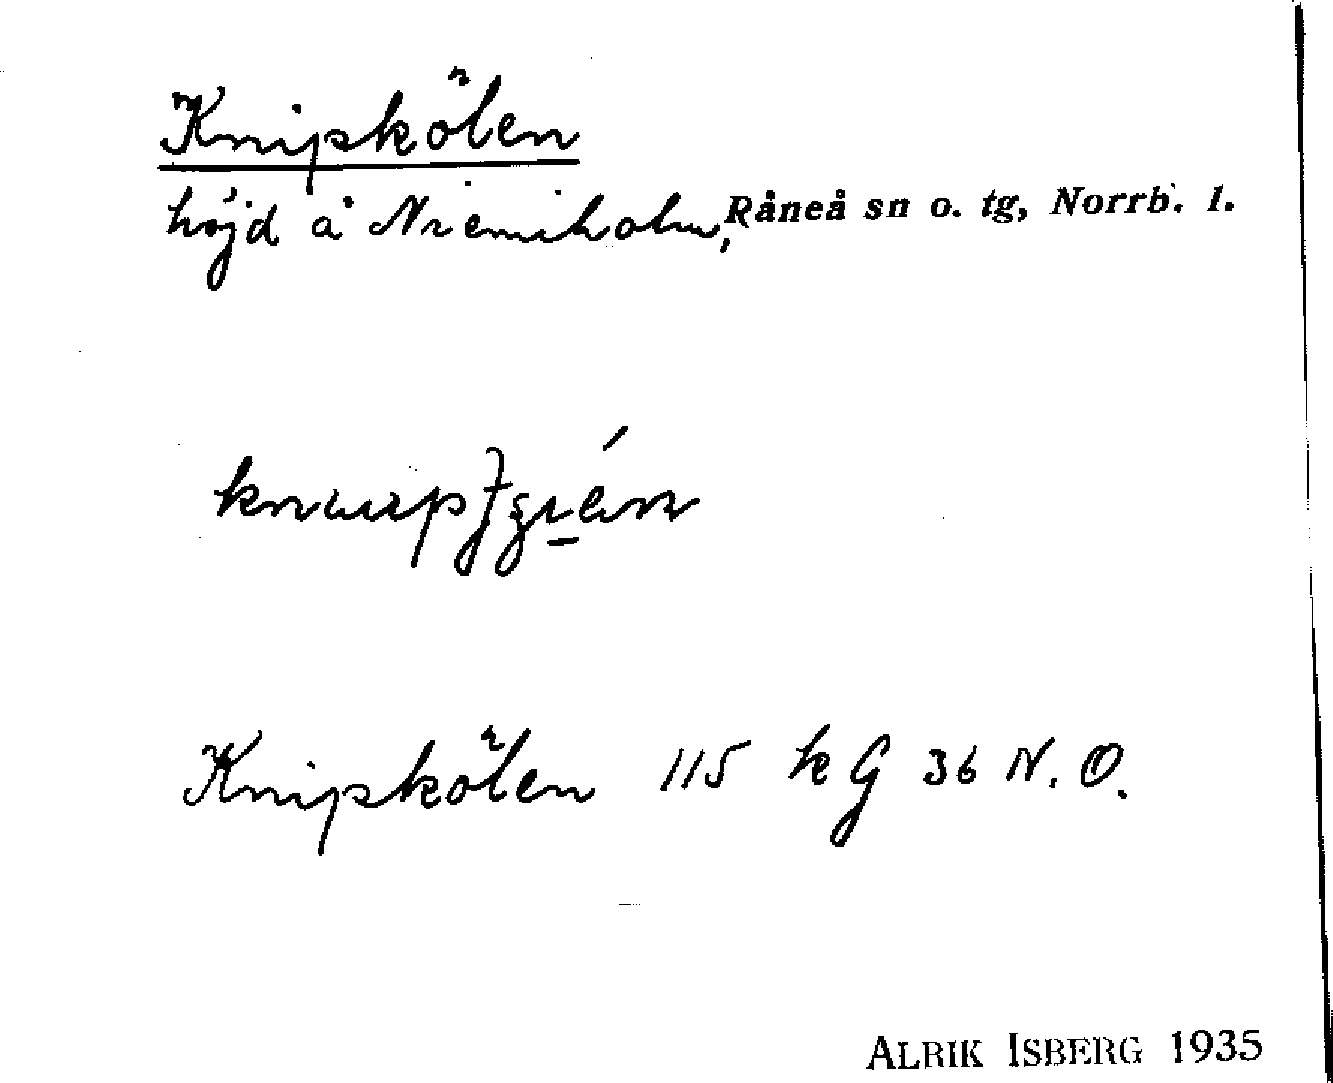 Knipkölen
höjd å Niemiholm, Råneå sn o. tg, Norrb. l.
Knipkölen 115 kG 36 N.O.
ALRIK ISBERG 1935